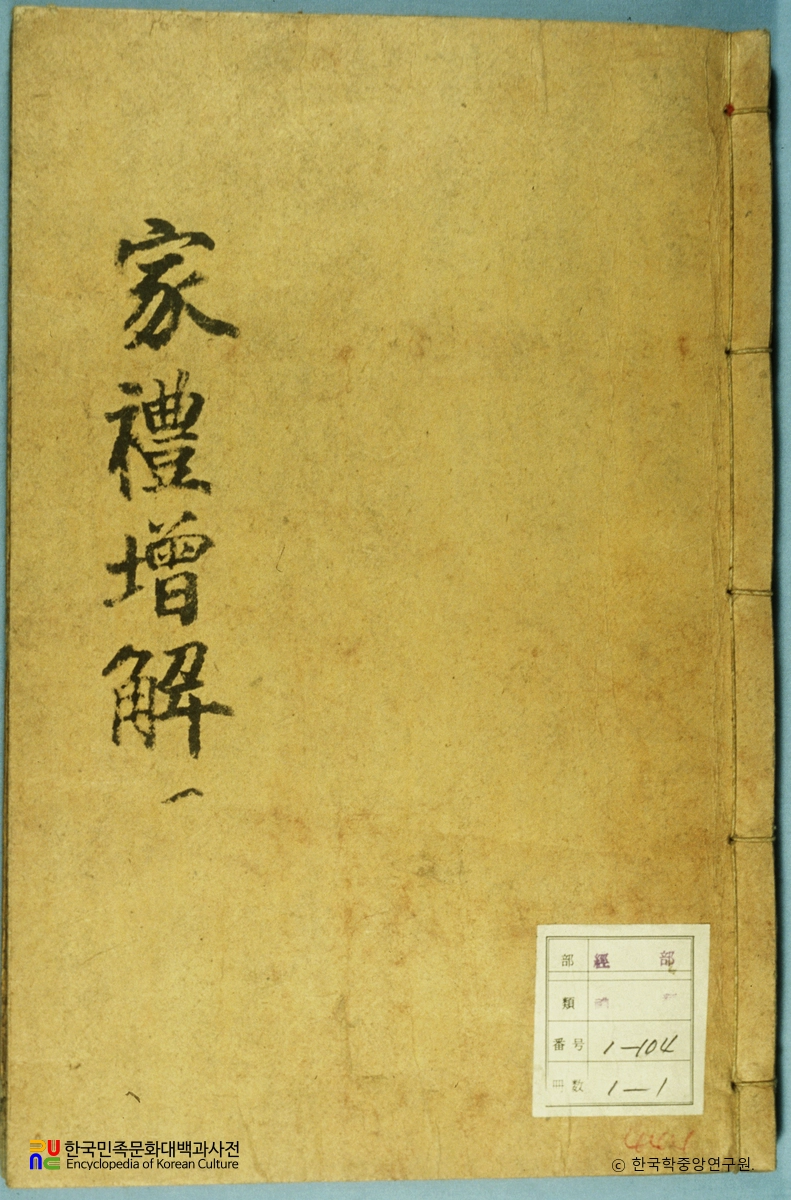 家禮增解 一
部 經 部
類
番号 1-104
冊数 1-1
한국민족문화대백과사전
Encyclopedia of Korean Culture
© 한국학중앙연구원